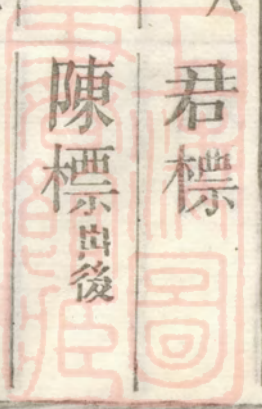 君標
陳標出後